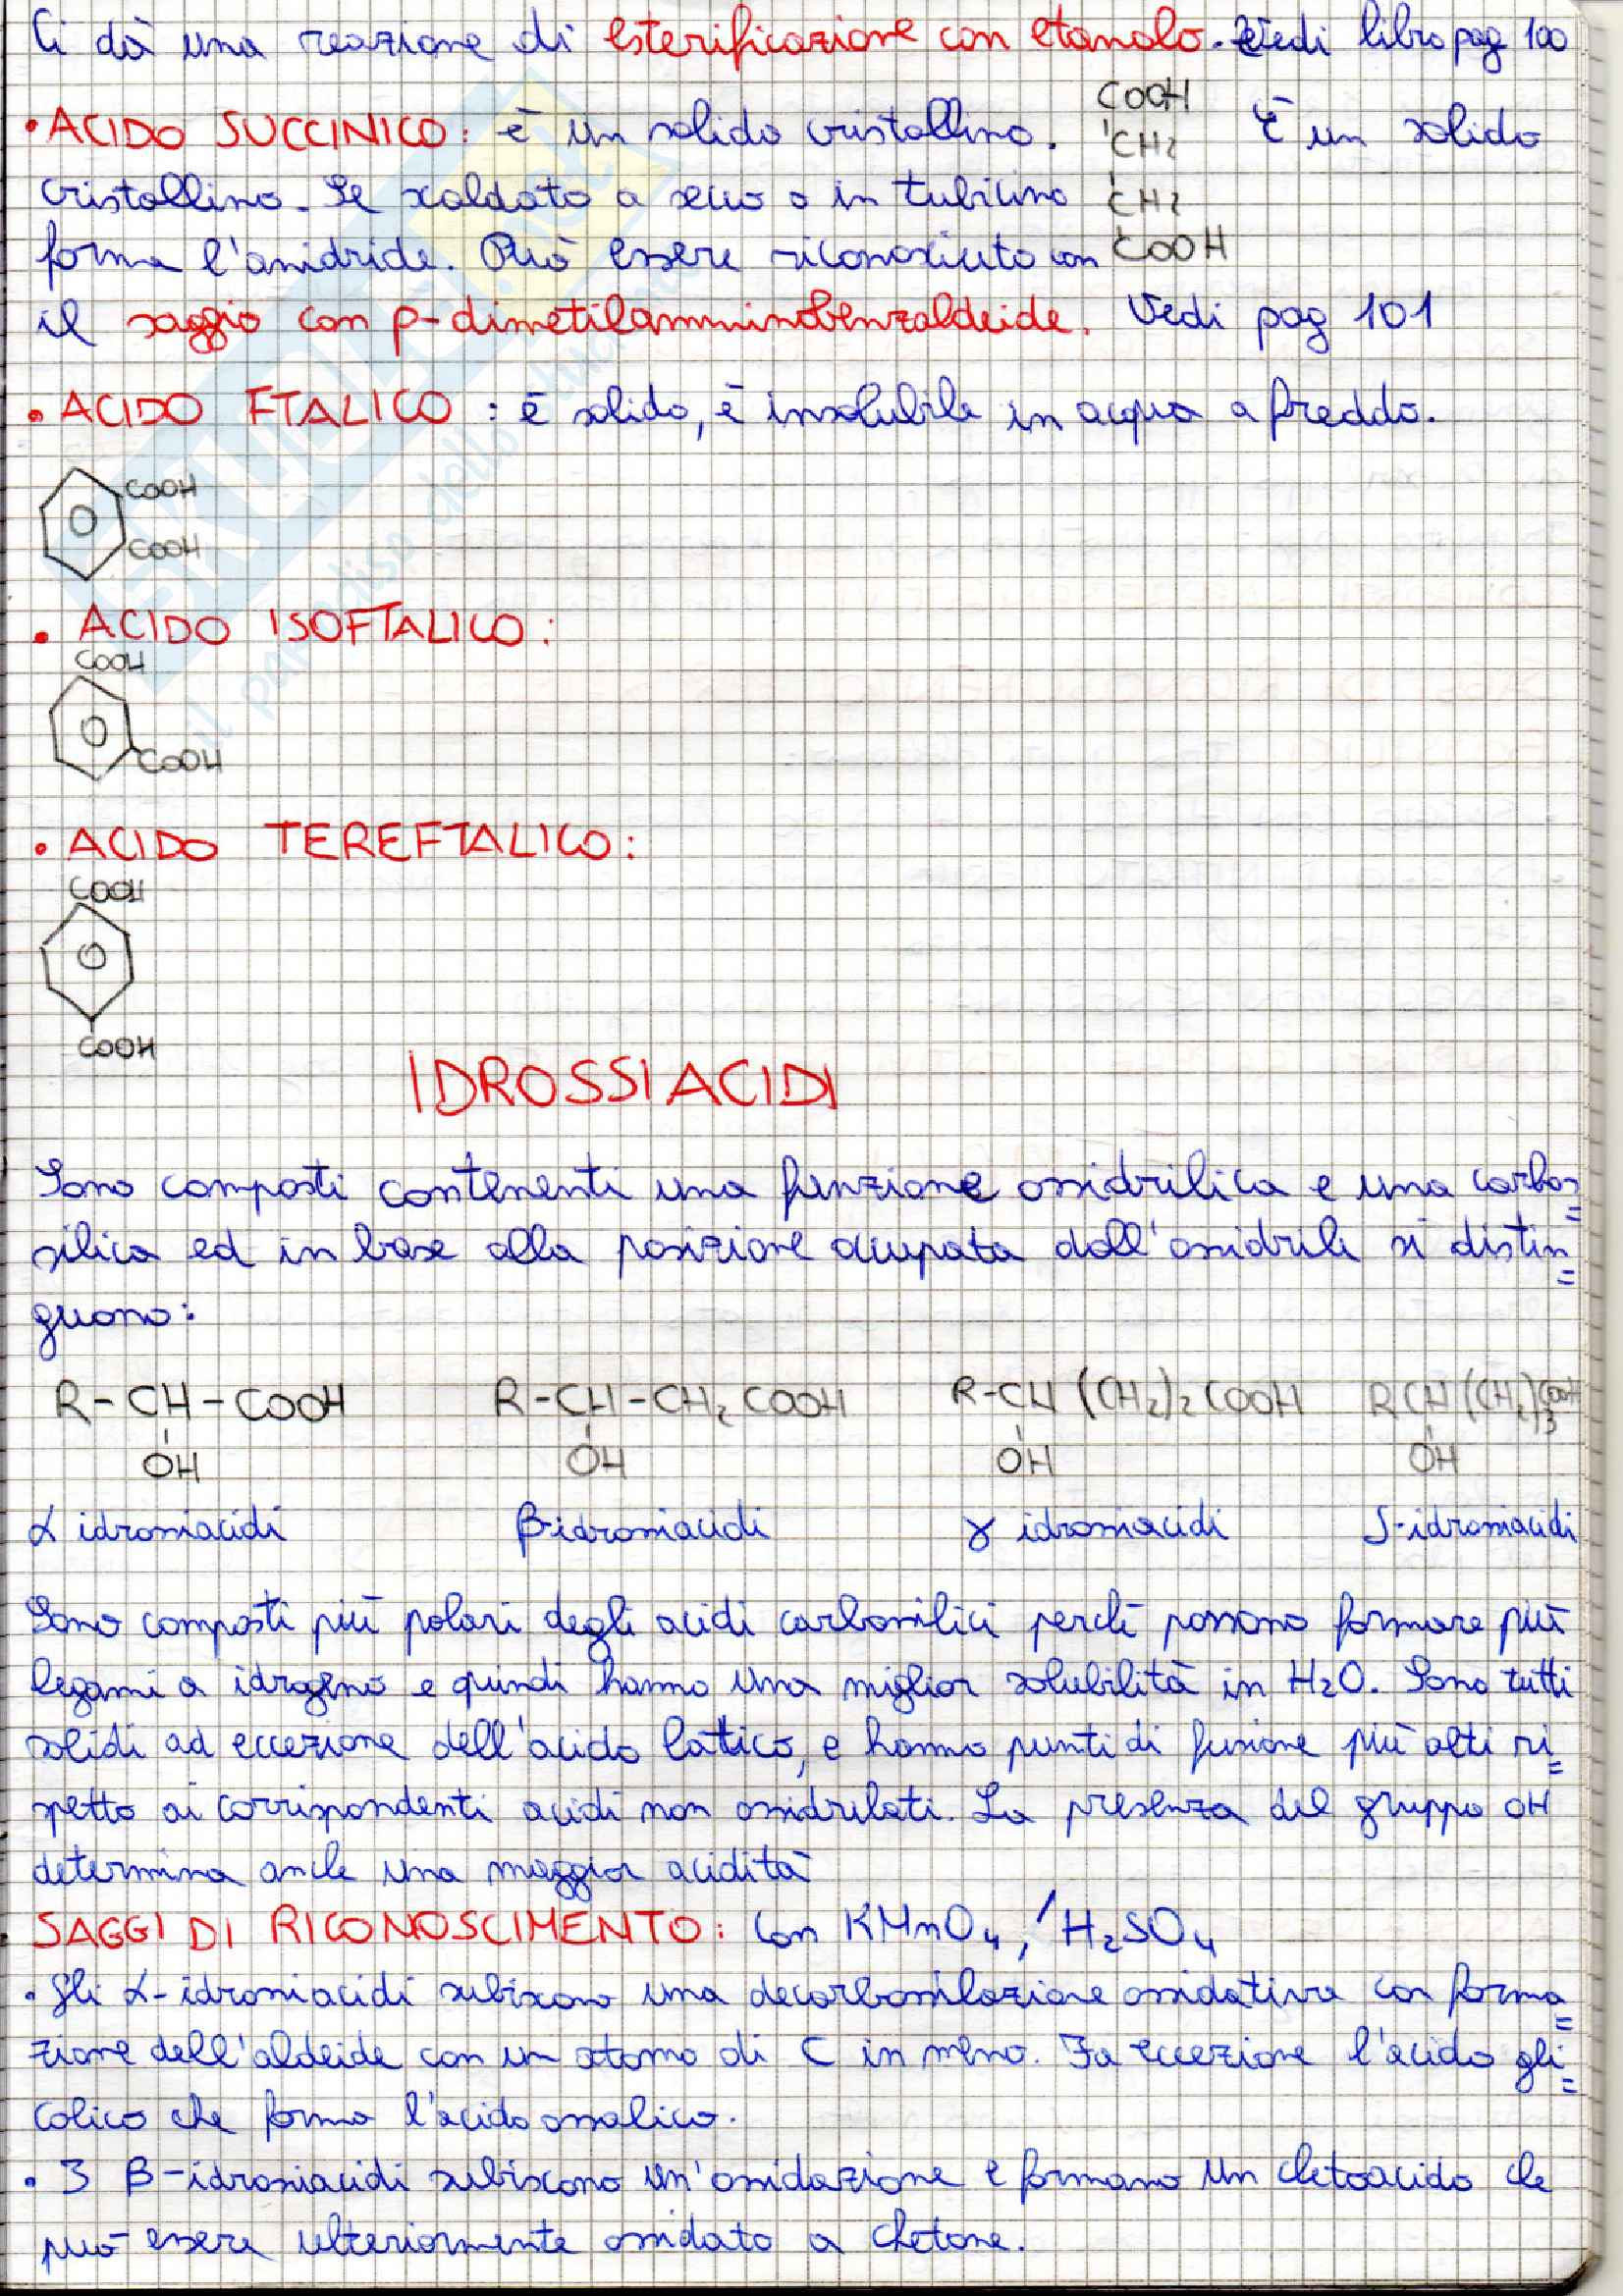 Ci dà una reazione di esterificazione con etanolo. Vedi libro pag 100
• ACIDO SUCCINICO: è un solido cristallino. È un solido
COOH
CH2
CH2
COOH
cristallino. Se scaldato a secco o in tubicino
forma l'anidride. Può essere riconosciuto con
il saggio con p-dimetilamminobenzaldeide. Vedi pag 101
• ACIDO FTALICO: è solido, è insolubile in acqua a freddo.
COOH
COOH
• ACIDO ISOFTALICO:
COOH
COOH
• ACIDO TEREFTALICO:
COOH
COOH
IDROSSIACIDI
Sono composti contenenti una funzione ossidrilica e una carbos=
silica ed in base alla posizione occupata dall'ossidrile si distin=
guono:
R-CH-COOH R-CH-CH2COOH R-CH(CH2)2COOH RCH(CH2)3COOH
OH OH OH OH
α idrossiacidi β-idrossiacidi γ idrossiacidi δ-idrossiacidi
Sono composti più polari degli acidi carbossilici perchè possono formare più
legami a idrogeno e quindi hanno una miglior solubilità in H2O. Sono tutti
solidi ad eccezione dell'acido lattico, e hanno punti di fusione più alti ri=
spetto ai corrispondenti acidi non ossidrilati. La presenza del gruppo OH
determina anche una maggior acidità
SAGGI DI RICONOSCIMENTO: Con KMnO4, /H2SO4
• Gli α-idrossiacidi subiscono una decarbossilazione ossidativa con forma=
zione dell'aldeide con un atomo di C in meno. Fa eccezione l'acido gli=
colico che forma l'acido ossalico.
• I β-idrossiacidi subiscono un'ossidazione e formano un chetoacido che
può essere ulteriormente ossidato a chetone.